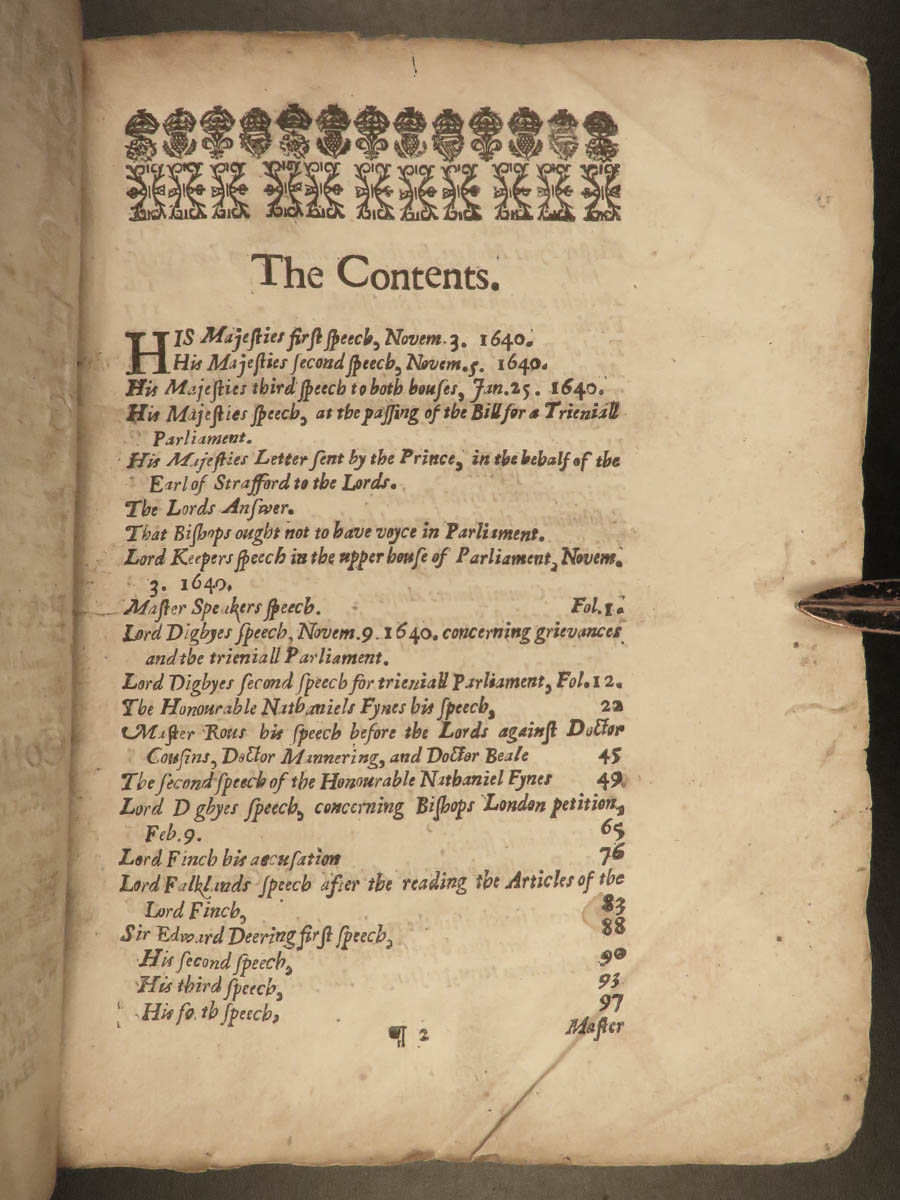 The Contents.
HIS Majeſties firſt ſpeech, Novem. 3. 1640.
His Majeſties ſecond ſpeech, Novem. 5. 1640.
His Majeſties third ſpeech to both houſes, Jan. 25. 1640.
His Majeſties ſpeech, at the paſſing of the Bill for a Trieniall
Parliament.
His Majeſties Letter ſent by the Prince, in the behalf of the
Earl of Strafford to the Lords.
The Lords Anſwer.
That Biſhops ought not to have voyce in Parliament.
Lord Keepers ſpeech in the upper houſe of Parliament, Novem.
3. 1640.
Maſter Speakers ſpeech. Fol. 1.
Lord Digbyes ſpeech, Novem. 9. 1640. concerning grievances
and the trieniall Parliament.
Lord Digbyes ſecond ſpeech for trieniall Parliament, Fol. 12.
The Honourable Nathaniels Fynes his ſpeech, 22
Maſter Rous his ſpeech before the Lords againſt Doctor
Couſins, Doctor Mannering, and Doctor Beale 45
The ſecond ſpeech of the Honourable Nathaniel Fynes 49
Lord D gbyes ſpeech, concerning Biſhops London petition,
Feb. 9. 65
Lord Finch his accuſation 76
Lord Falklands ſpeech after the reading the Articles of the
Lord Finch, 83
Sir Edward Deering firſt ſpeech, 88
His ſecond ſpeech, 90
His third ſpeech, 93
His fo. th ſpeech, 97
¶ 2 Maſter